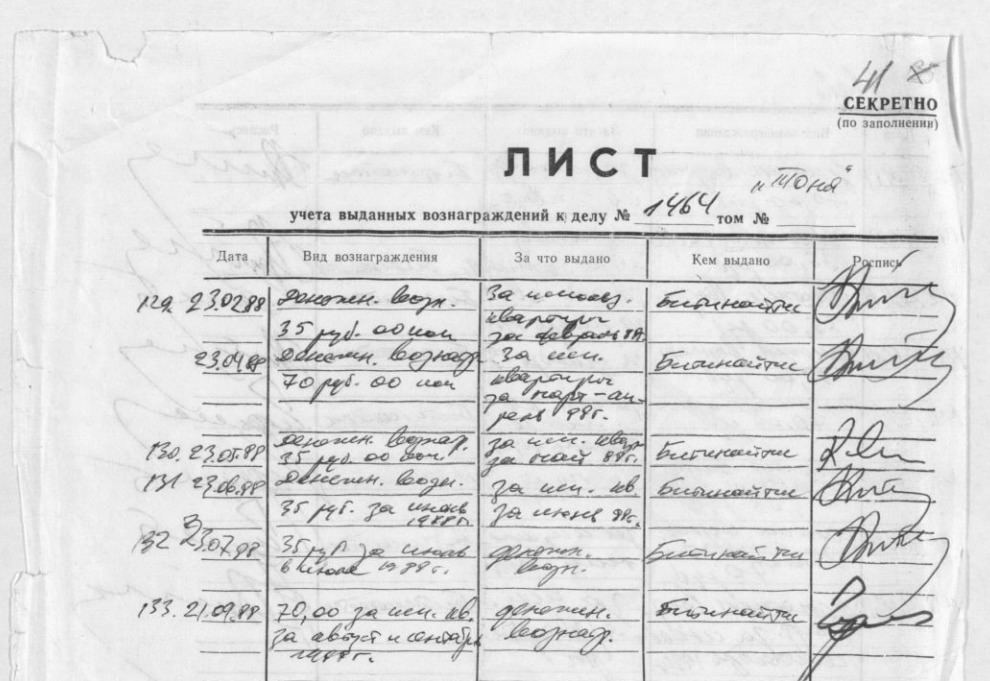 41
СЕКРЕТНО
(по заполнении)
ЛИСТ
"Тоня"
учета выданных вознаграждений к делу № 1464 том №
Дата Вид вознаграждения За что выдано Кем выдано Роспись
129 23.02.88 Денежн. возн. За использ. Битинайтис
35 руб. 00 коп квартиры
за февраль 88г.
23.04.88 Денежн. вознагр. За исп. Битинайтис
70 руб. 00 коп квартиры
за март-ап-
рель 88г.
130. 23.05.88 Денежн. вознагр. за исп. кварт. Битинайтис
35 руб. 00 коп. за май 88г.
131 23.06.88 Денежн. возн. за исп. кв. Битинайтис
35 руб. за июнь за июнь 88г.
1988г.
132 23.07.88 35 руб за денежн. Битинайтис
в июле 1988г. возн.
133. 21.09.88 70,00 за исп. кв. денежн. Битинайтис
за август и сентябрь вознагр.
1988г.